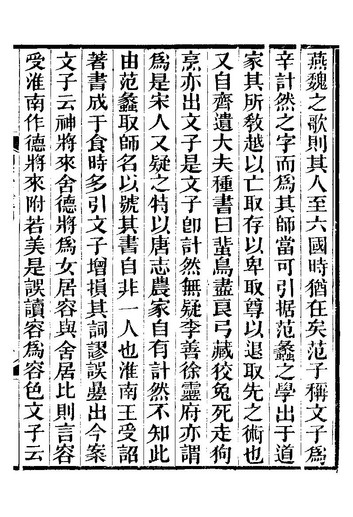 燕魏之歌則其人至六國時猶在矣范子稱文子爲
辛計然之字而爲其師當可引据范蠡之學出于道
家其所敎越以亡取存以卑取尊以退取先之術也
又自齊遺大夫種書曰蜚鳥盡良弓藏狡兔死走狗
烹亦出文子是文子卽計然無疑李善徐靈府亦謂
爲是宋人又疑之特以唐志農家自有計然不知此
由范蠡取師名以號其書自非一人也淮南王受詔
著書成于食時多引文子增損其詞謬誤曡出今案
文子云神將來舍德將爲女居容與舍居比則言容
受淮南作德將來附若美是誤讀容爲容色文子云